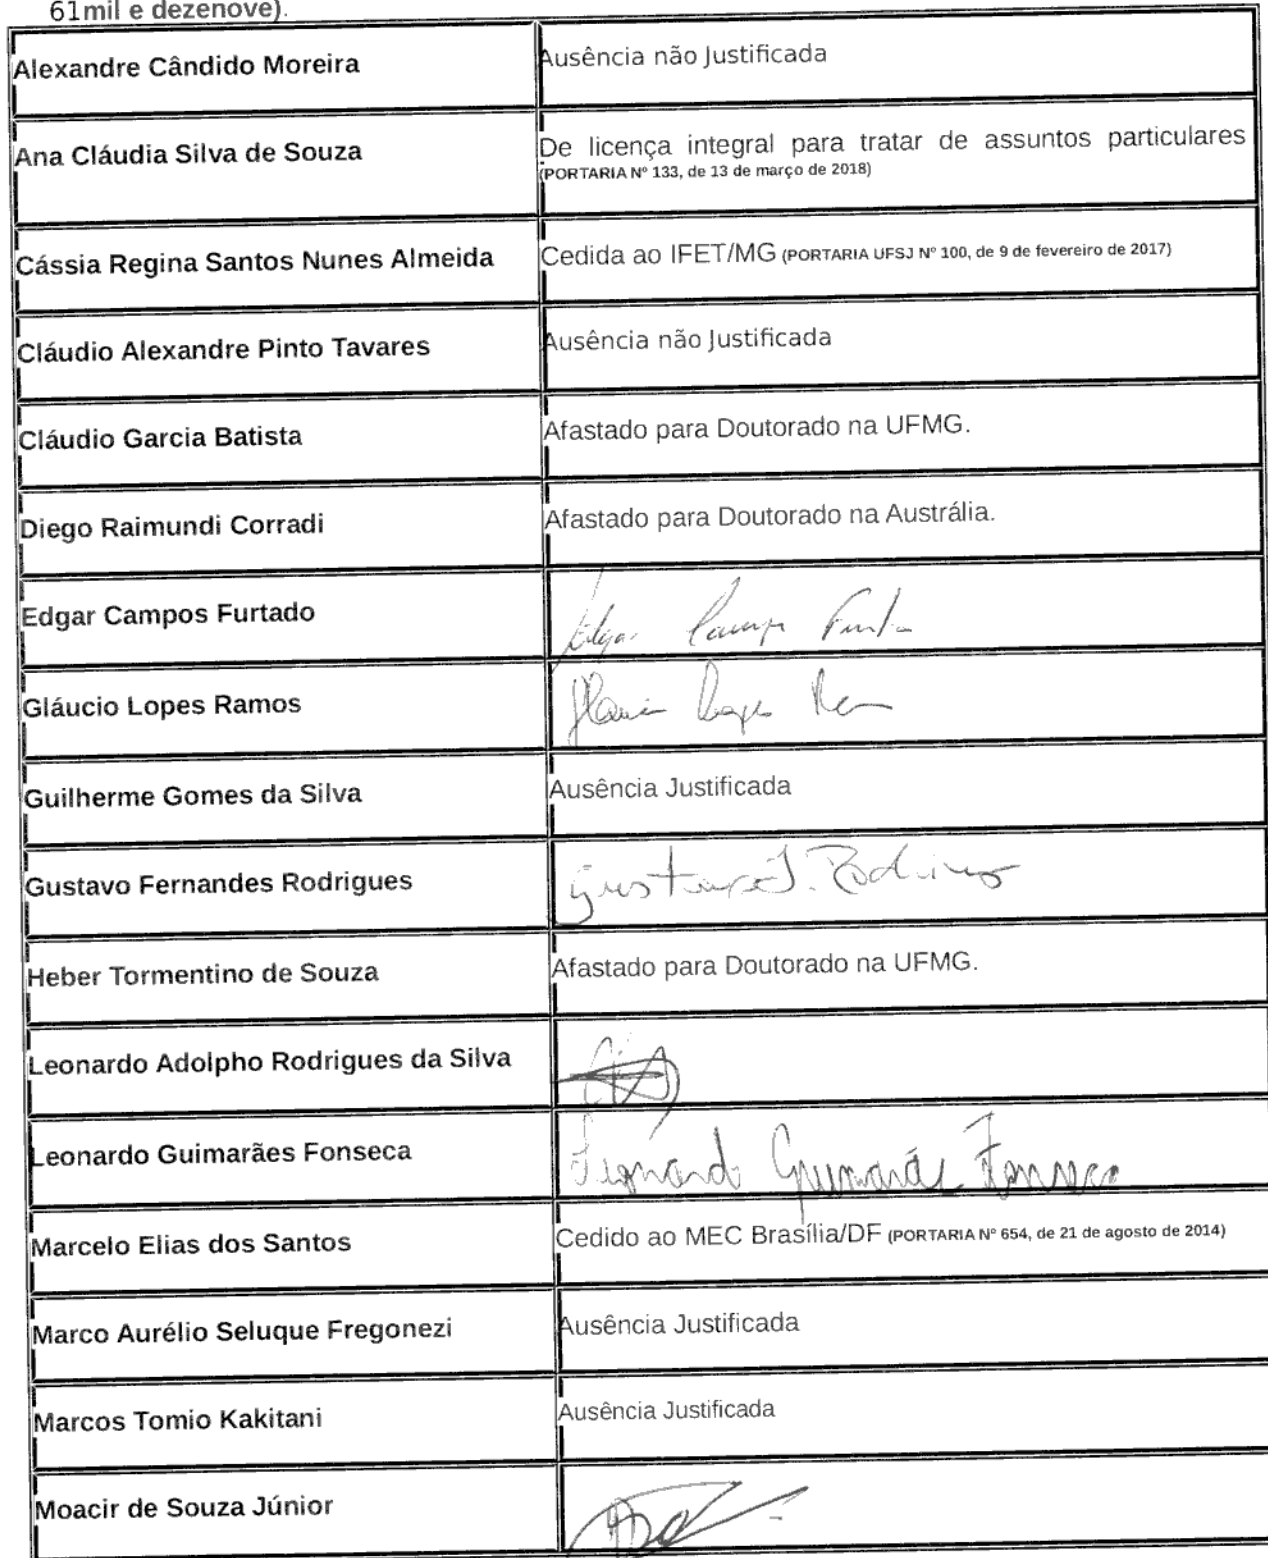 61mil e dezenove).
Alexandre Cândido Moreira
Ausência não Justificada
Ana Cláudia Silva de Souza
De licença integral para tratar de assuntos particulares
(PORTARIA Nº 133, de 13 de março de 2018)
Cássia Regina Santos Nunes Almeida
Cedida ao IFET/MG (PORTARIA UFSJ Nº 100, de 9 de fevereiro de 2017)
Cláudio Alexandre Pinto Tavares
Ausência não Justificada
Cláudio Garcia Batista
Afastado para Doutorado na UFMG.
Diego Raimundi Corradi
Afastado para Doutorado na Austrália.
Edgar Campos Furtado
Edgar Campos Furtado
Gláucio Lopes Ramos
Lopes
Guilherme Gomes da Silva
Ausência Justificada
Gustavo Fernandes Rodrigues
Gustavo F. Rodrigues
Heber Tormentino de Souza
Afastado para Doutorado na UFMG.
Leonardo Adolpho Rodrigues da Silva
Leonardo Guimarães Fonseca
Leonardo Guimarães Fonseca
Marcelo Elias dos Santos
Cedido ao MEC Brasília/DF (PORTARIA Nº 654, de 21 de agosto de 2014)
Marco Aurélio Seluque Fregonezi
Ausência Justificada
Marcos Tomio Kakitani
Ausência Justificada
Moacir de Souza Júnior